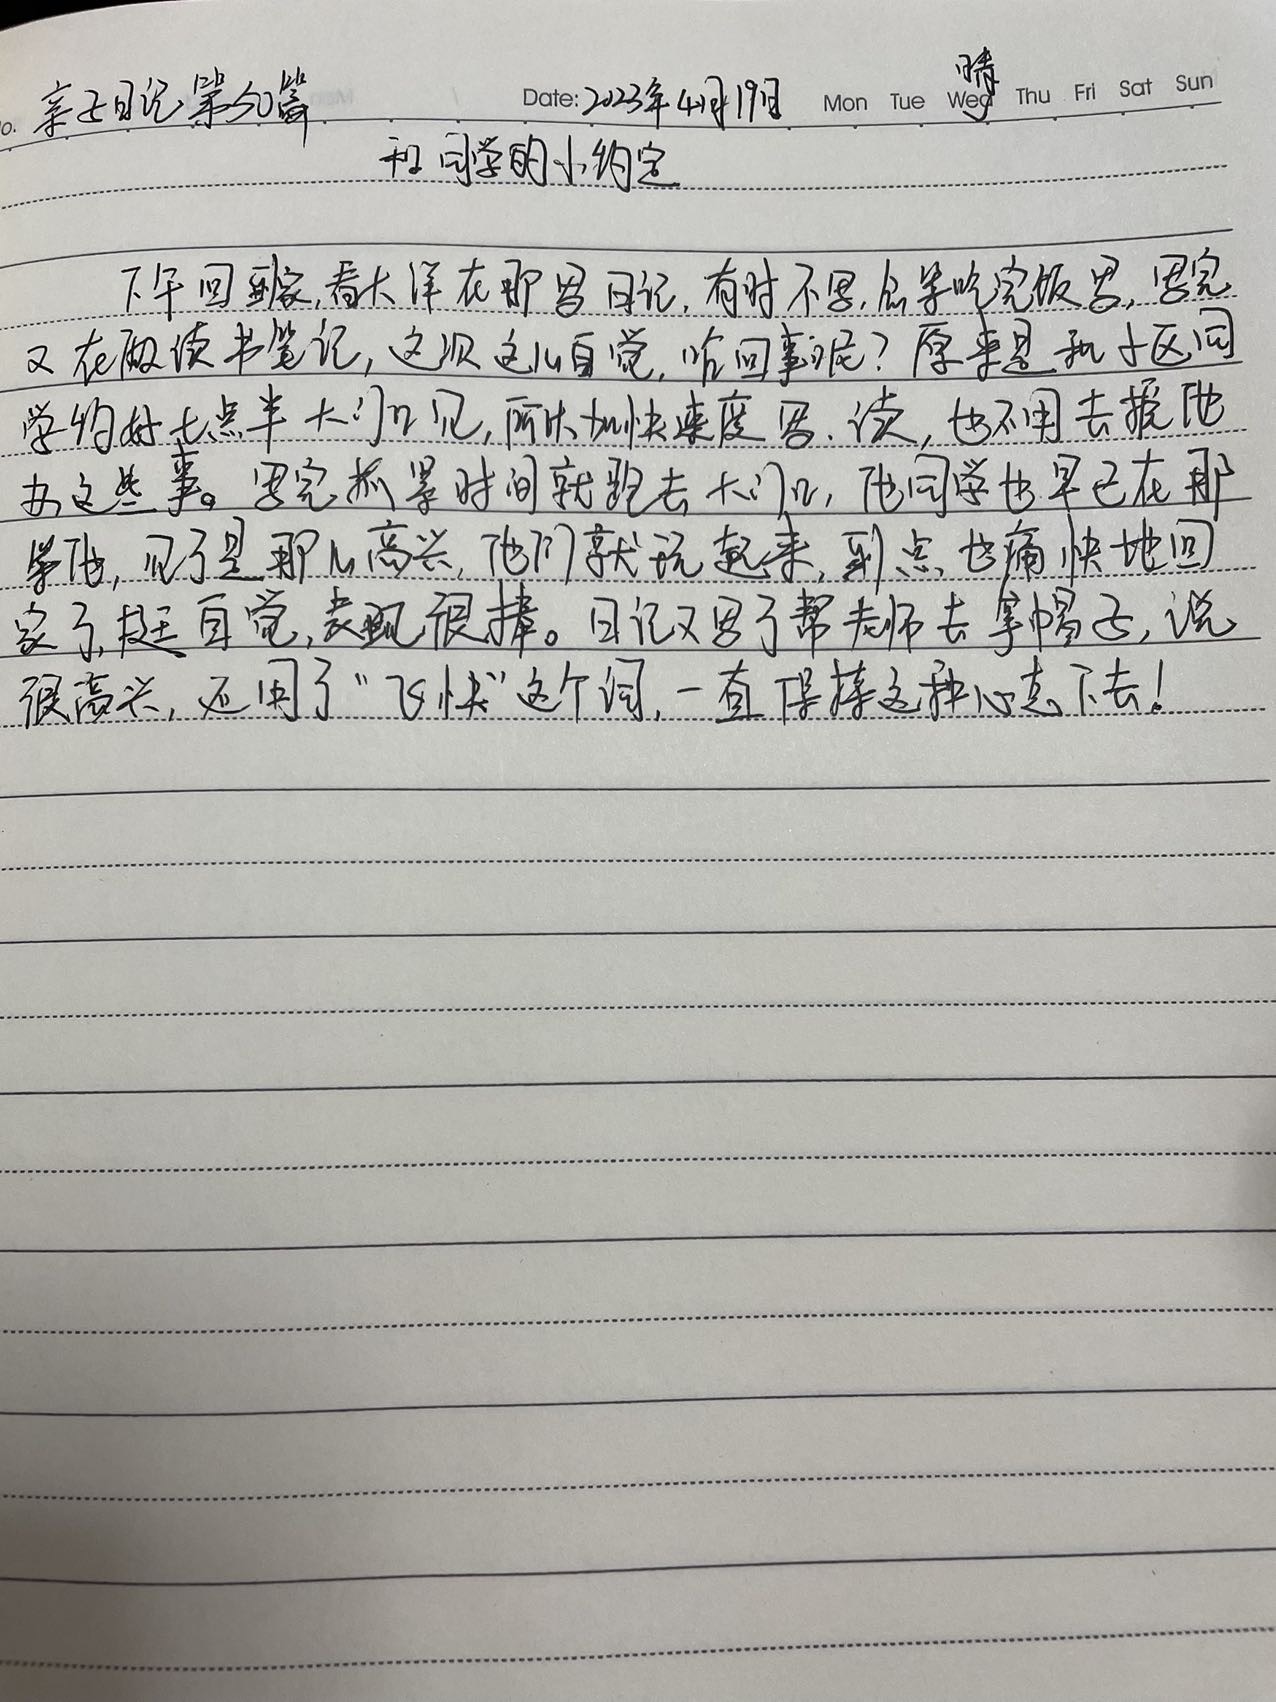 o. 亲子日记第50篇 Date: 2023年4月19日 晴 Mon Tue Wed Thu Fri Sat Sun
和同学的小约定
下午回到家,看大洋在那写日记,有时不写,总等吃完饭写,写完
又在做读书笔记,这次这么自觉,啥回事呢?原来是和小区同
学约好七点半大门口见,所以加快速度写、读,也不用去提他
办这些事。写完抓紧时间就跑去大门口,他同学也早已在那
等他,见了是那么高兴,他们就玩起来,到点也痛快地回
家了,挺自觉,表现很棒。日记又写了帮老师去拿帽子,说
很高兴,还用了“飞快”这个词,一直保持这种心态下去!